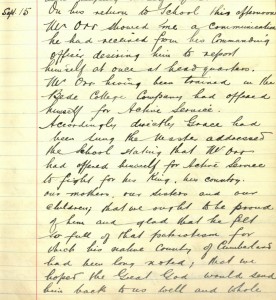 Sept 15 On his return to School this afternoon
Mr Orr showed me a communication
he had received from his Commanding
officer desiring him to report
himself at once at headquarters.
Mr Orr having been trained in the
Bede College Company had offered
himself for Active Service.
Accordingly directly Grace had
been sung the Master addressed
the School stating that Mr Orr
had offered himself for Active Service
to fight for his King, his country
our mothers, our sisters and our
children; that we ought to be proud
of him and glad that he felt
so full of that patriotism for
which his native Country of Cumberland
had been long noted; that we
hoped the Great God would send
him back to us well and whole